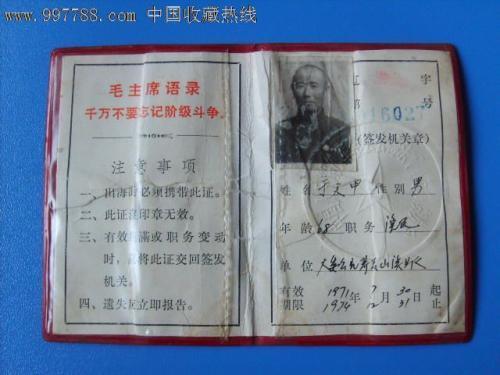 www.997788.com 中国收藏热线
毛主席语录
千万不要忘记阶级斗争。
注意事项
一、出海时必须携带此证。
二、此证没印章无效。
三、有效期满或职务变动
时，应将此证交回签发
机关。
四、遗失应立即报告。
字
第 16027 号
（签发机关章）
姓名 于文甲 性别 男
年龄 68 职务 渔民
单位
有效 1971年 7月30日起
期限 1974 12 31 止